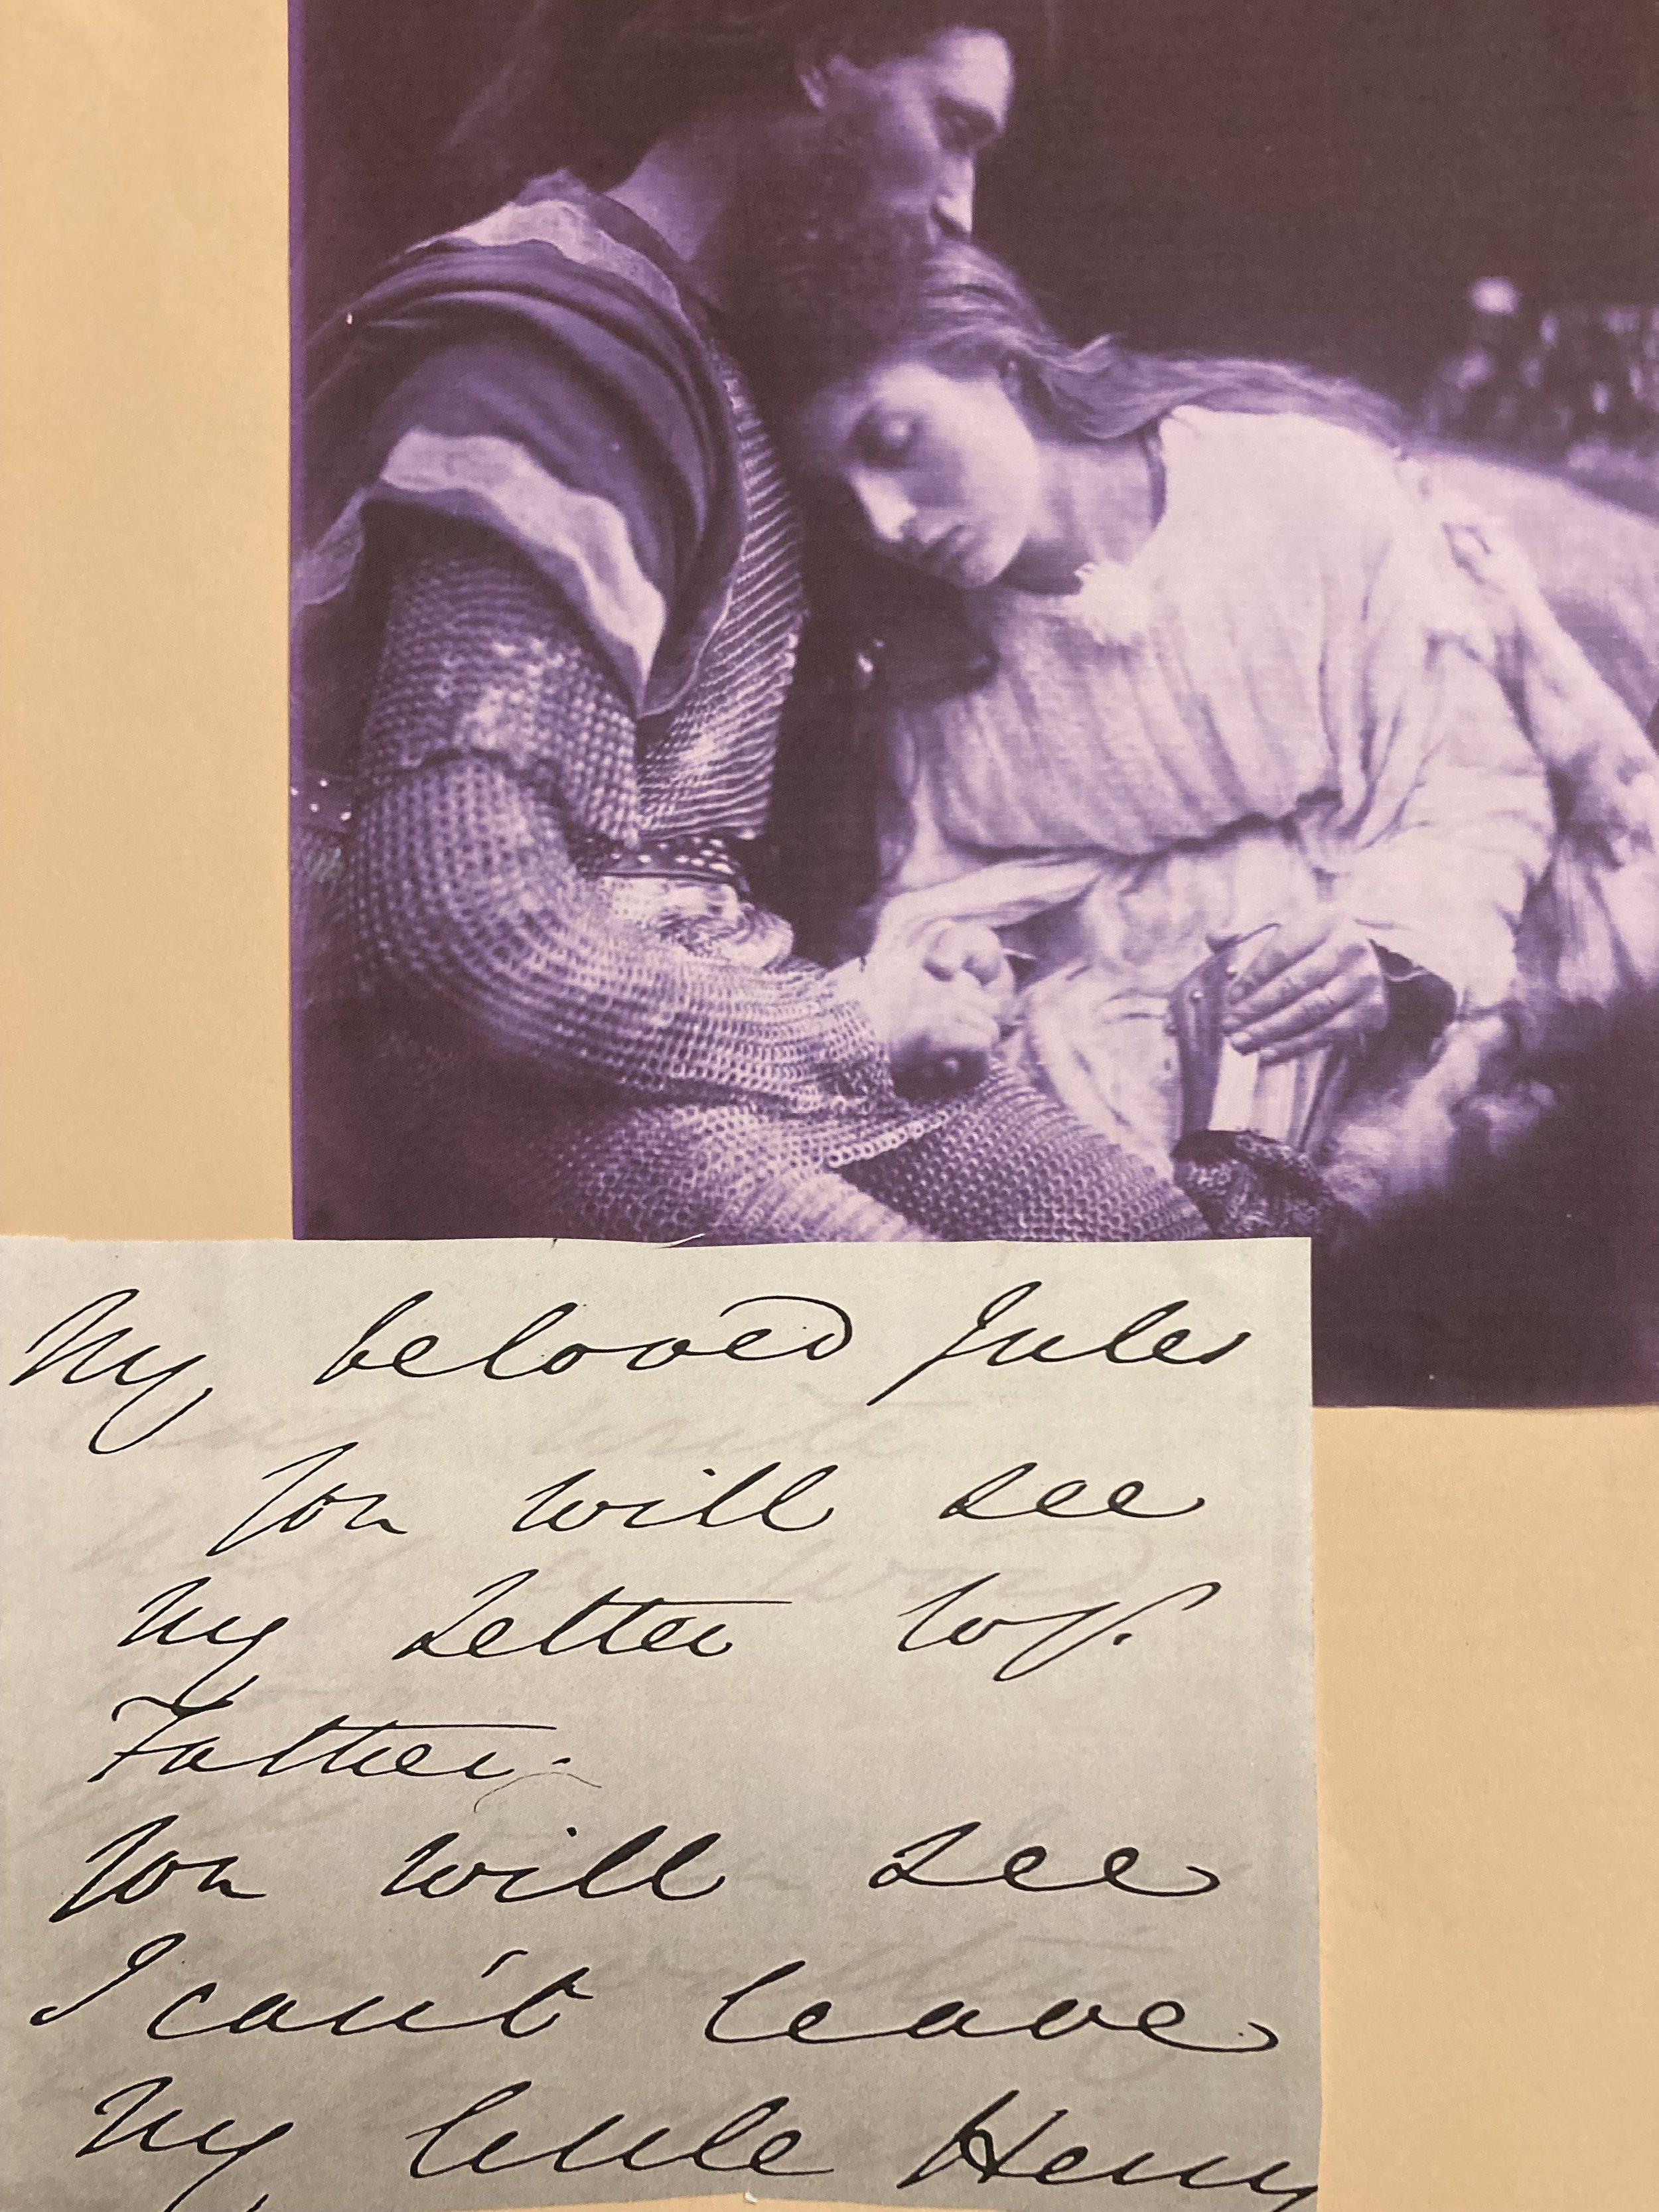 My beloved Jules
You will see
my Letter to yr.
Father.
You will see
I can't leave
my little Henry